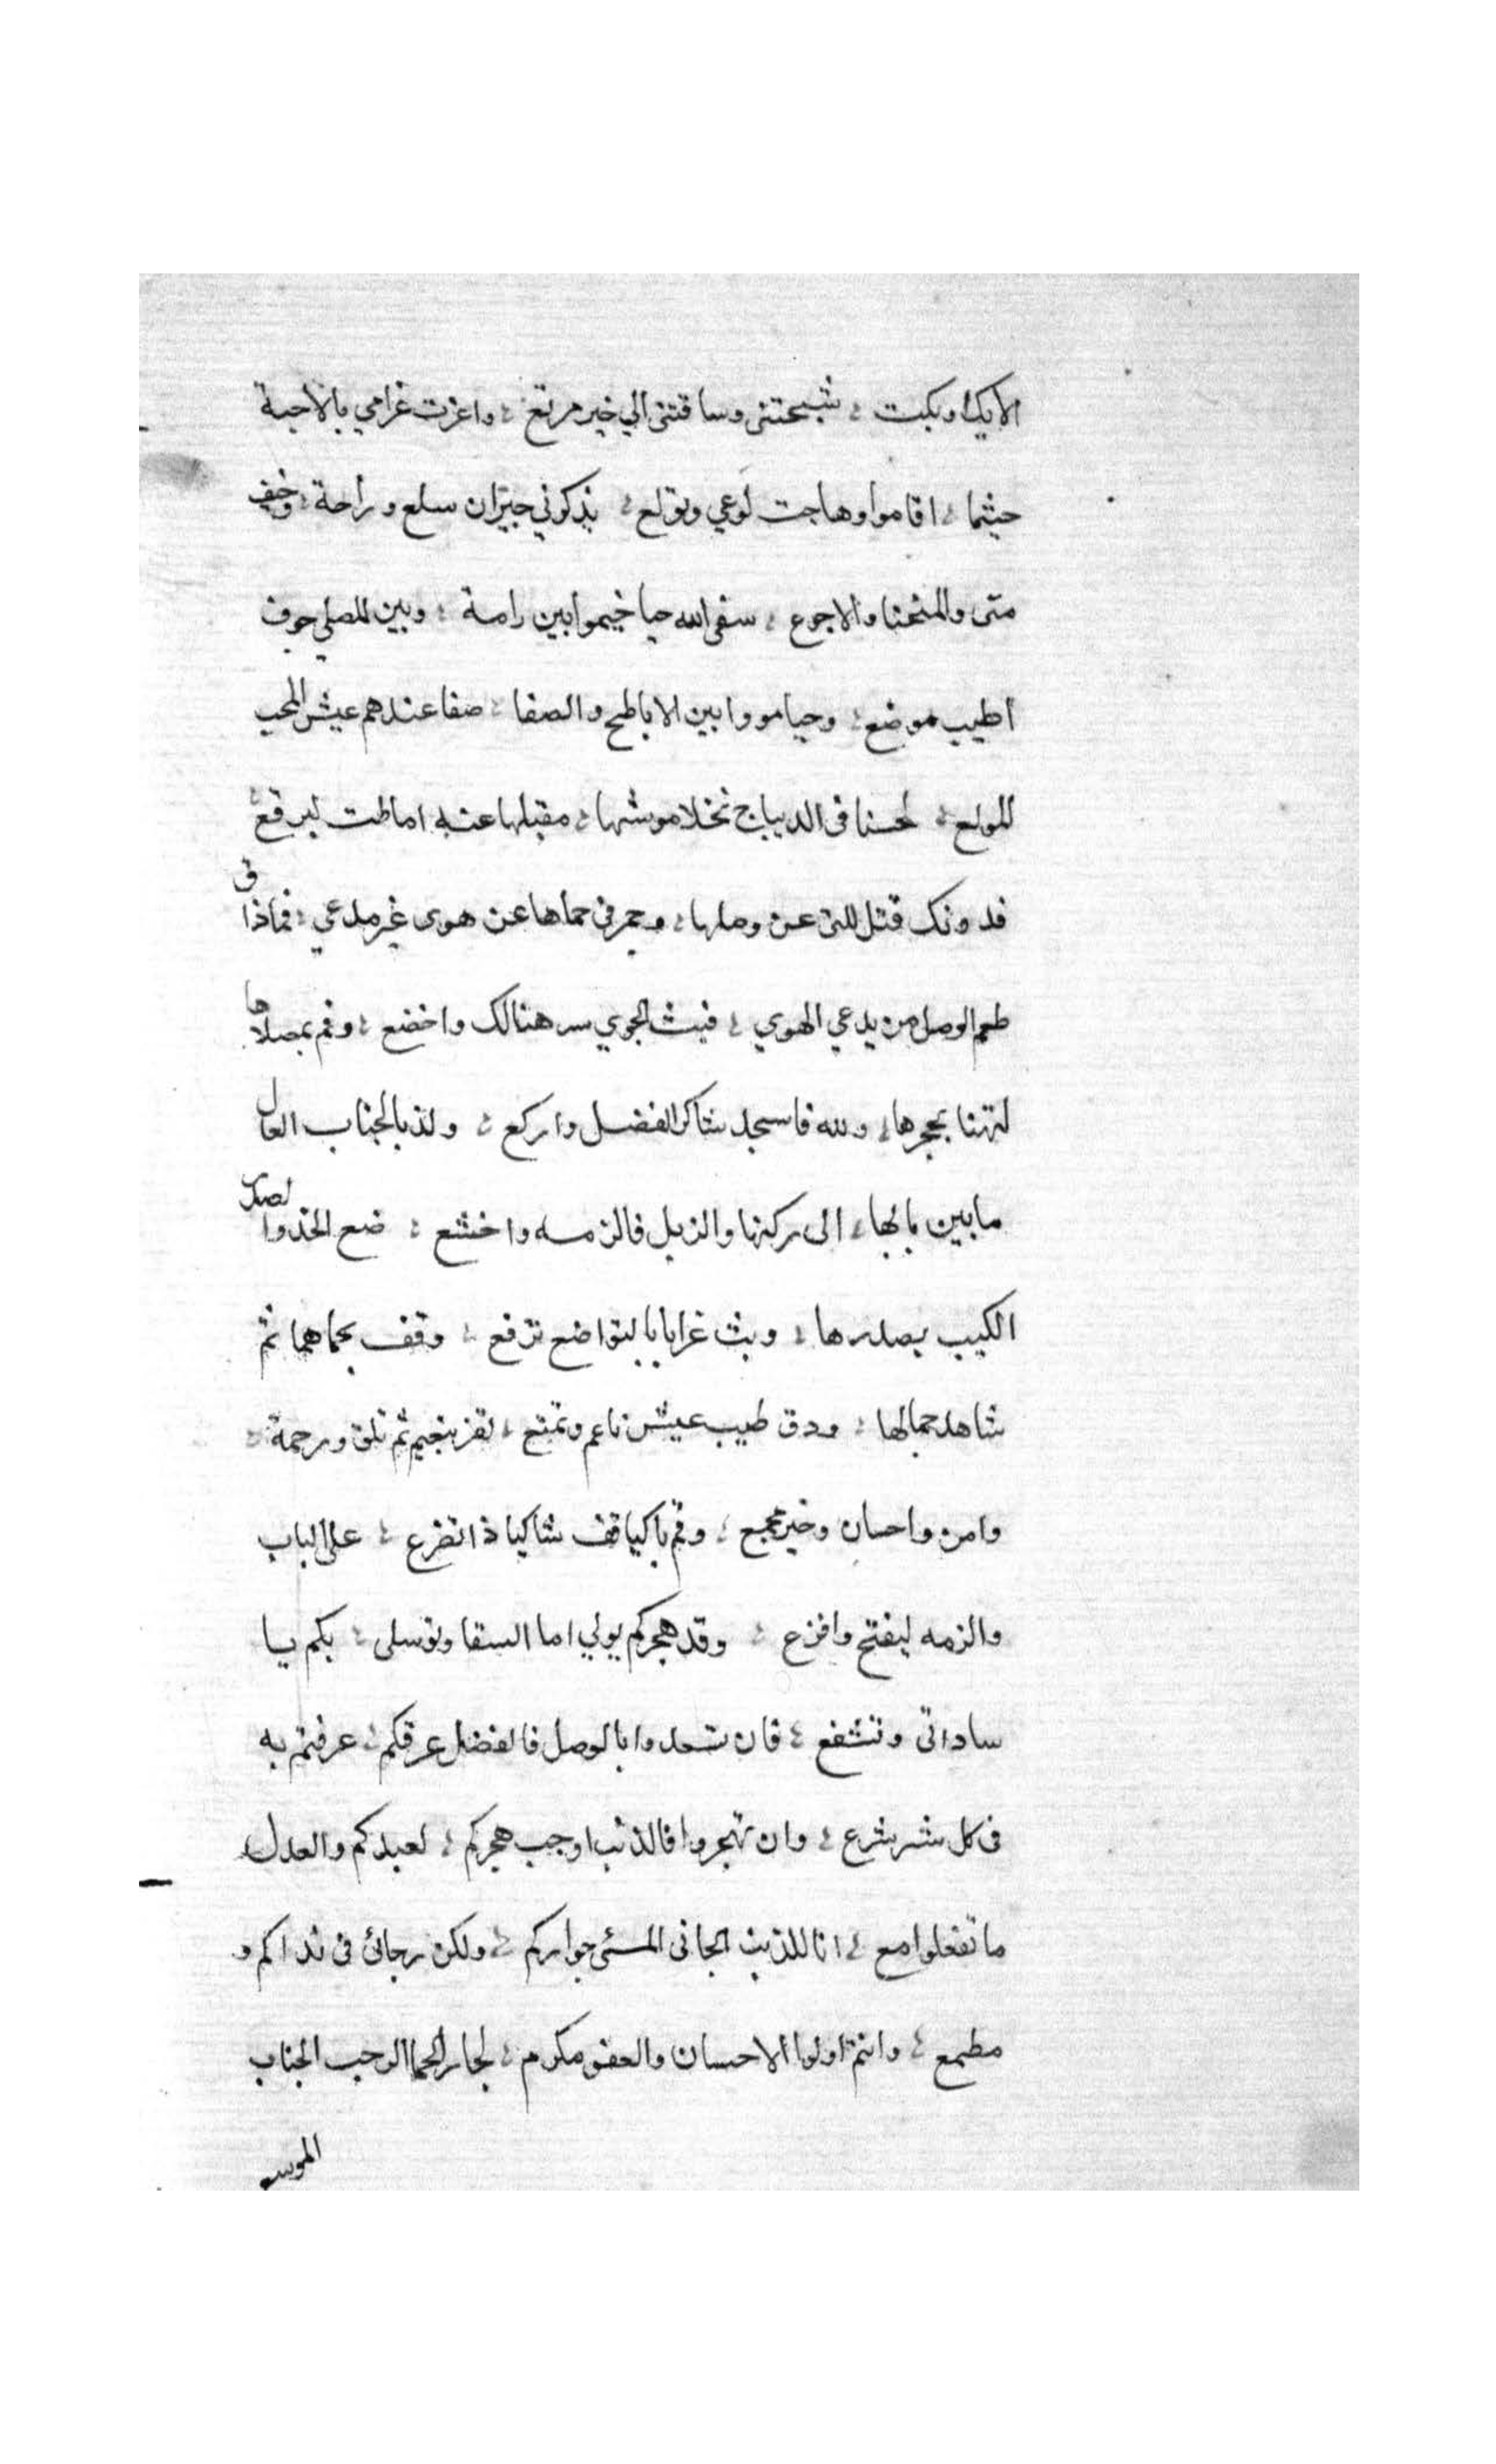 الايك او بكت ؛ شجتنى وساقتنى الي خير مربع ؛ واغرت غرامي بالاحبة
حيثما ؛ اقاموا وهاجت لوعي وتولع ؛ يذكروني جيران سلع ورامة ؛ وخيف
متى والمنحنا والاجوع ؛ سقى الله حيا خيموا بين رامة ؛ وبين المصلى جوف
اطيب موضع ؛ وحيا مووا بين الاباطح والصفا ؛ صفا عندهم عيش المحب
المولع ؛ لحسنا فى الديباج تخلا موشها ؛ مقبلها عنه اماطت لبرقع ؛
فدونك قتل للتى عن وصلها ؛ وجمر فى حماها عن هوى غير مدعي ؛ فماذا ق
طعم الوصل من يدعي الهوي ؛ فبث الجوي سر هنالك واخضع ؛ وقم بمصلاها
لتهنا بحجرها ؛ ولله فاسجد شاكر الفضل واركع ؛ ولذ بالجناب العال
ما بين بابها ؛ الى ركنها والذيل فالزمه واخشع ؛ ضع الخد والصدر
الكيب بصدرها ؛ وبث غرابا بالتواضع ترفع ؛ وقف بحماها ثم
شاهد جمالها ؛ ودق طيب عيش ناعم وتمتع ؛ تفز بنعيم ثم تلق ورحمة ؛
وامن واحسان وخير مجمع ؛ وقم باكيا قف شاكيا ذا تضرع ؛ على الباب
والزمه ليفتح وافزع ؛ وقد هجركم يولي اما السقا وتوسلى ؛ بكم يا
ساداتى وتشفع ؛ فان تسعدوا بالوصل فالفضل عرفكم ؛ عرفتم به
فى كل شر شرع ؛ وان تهجروا فالذنب اوجب هجركم ؛ لعبدكم والعدل
ما تفعلوا مع ؛ انا المذنب الجانى المسئ جواركم ؛ ولكن رجائ فى نداكم و
مطمع ؛ وانتم اولوا الاحسان والعفو مكرم ؛ لجار الحما الرحب الجناب
الموسع